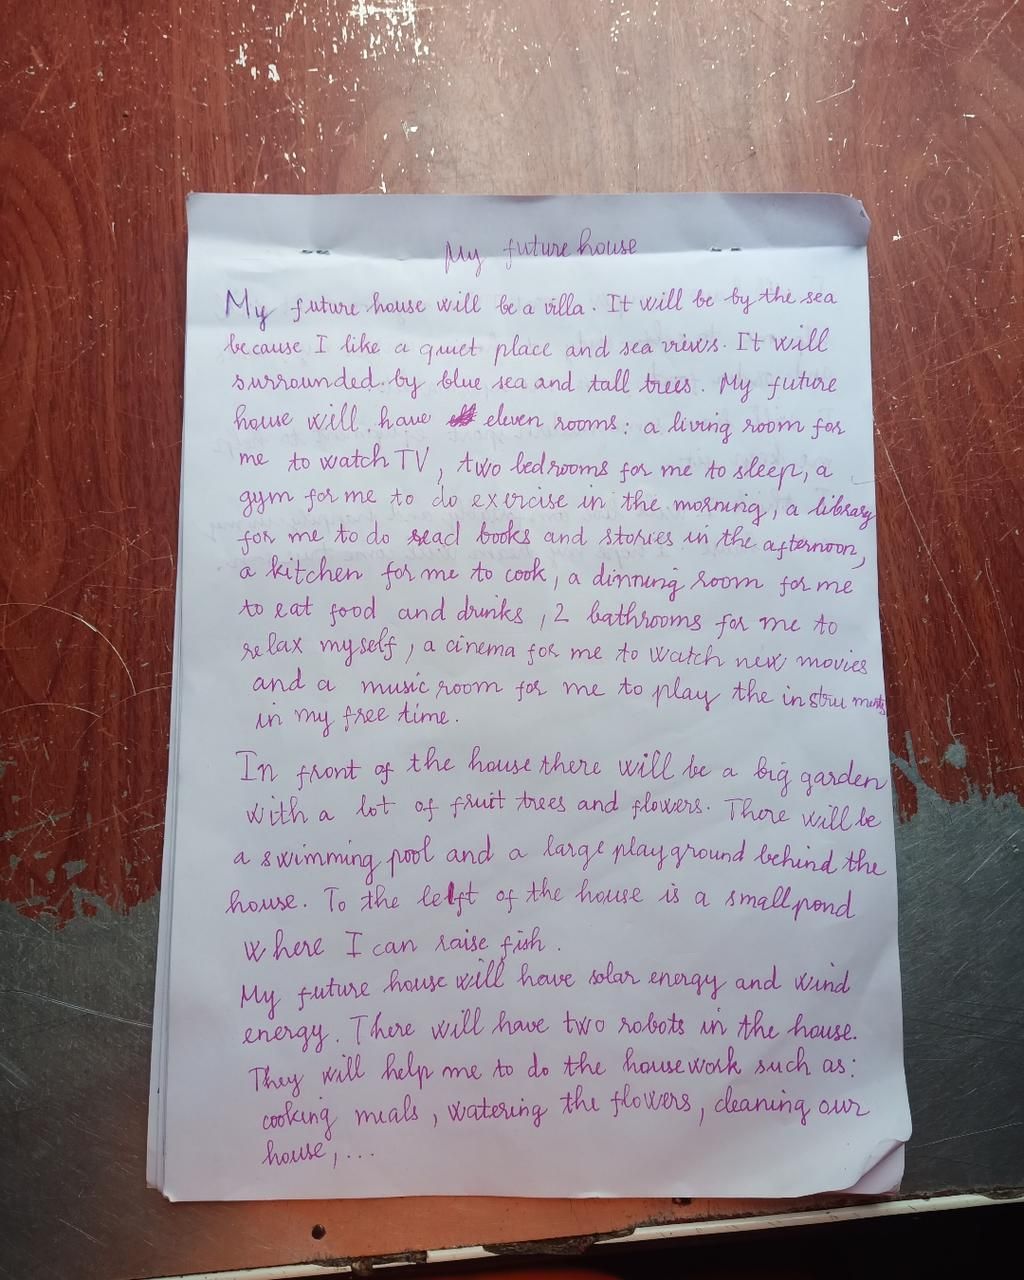 My future house
My future house will be a villa. It will be by the sea
because I like a quiet place and sea views. It will
surrounded by blue sea and tall trees. My future
house will have eleven rooms: a living room for
me to watch TV, two bedrooms for me to sleep, a
gym for me to do exercise in the morning, a library
for me to do read books and stories in the afternoon,
a kitchen for me to cook, a dinning room for me
to eat food and drinks, 2 bathrooms for me to
relax myself, a cinema for me to watch new movies
and a music room for me to play the instruments
in my free time.
In front of the house there will be a big garden
with a lot of fruit trees and flowers. There will be
a swimming pool and a large playground behind the
house. To the left of the house is a small pond
where I can raise fish.
My future house will have solar energy and wind
energy. There will have two robots in the house.
They will help me to do the housework such as:
cooking meals, watering the flowers, cleaning our
house, ...